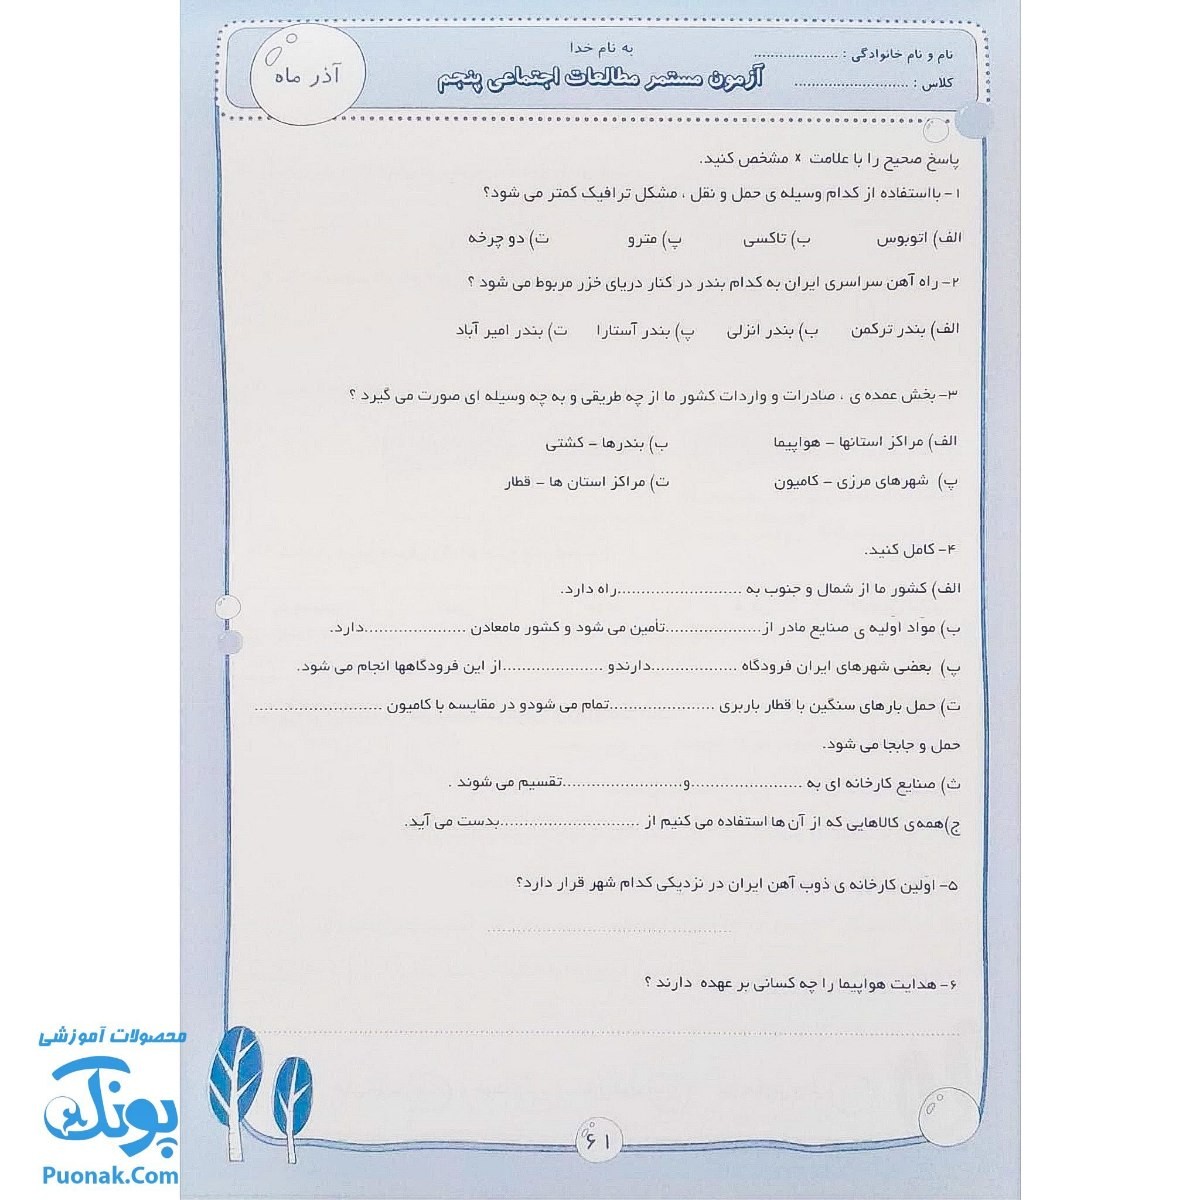 نام و نام خانوادگی : .....................
به نام خدا
کلاس : ...........................
آزمون مستمر مطالعات اجتماعی پنجم
آذر ماه
پاسخ صحیح را با علامت × مشخص کنید.
۱- بااستفاده از کدام وسیله ی حمل و نقل ، مشکل ترافیک کمتر می شود؟
الف) اتوبوس ب) تاکسی پ) مترو ت) دو چرخه
۲- راه آهن سراسری ایران به کدام بندر در کنار دریای خزر مربوط می شود ؟
الف) بندر ترکمن ب) بندر انزلی پ) بندر آستارا ت) بندر امیر آباد
۳- بخش عمده ی ، صادرات و واردات کشور ما از چه طریقی و به چه وسیله ای صورت می گیرد ؟
الف) مراکز استانها - هواپیما ب) بندرها - کشتی
پ) شهرهای مرزی - کامیون ت) مراکز استان ها - قطار
۴- کامل کنید.
الف) کشور ما از شمال و جنوب به ..........................راه دارد.
ب) موّاد اوّلیه ی صنایع مادر از....................تأمین می شود و کشور مامعادن .....................دارد.
پ) بعضی شهرهای ایران فرودگاه ..................دارندو .....................از این فرودگاهها انجام می شود.
ت) حمل بارهای سنگین با قطار باربری ......................تمام می شودو در مقایسه با کامیون ...........................
حمل و جابجا می شود.
ث) صنایع کارخانه ای به .......................و.........................تقسیم می شوند .
ج)همه‌ی کالاهایی که از آن ها استفاده می کنیم از .............................بدست می آید.
۵- اوّلین کارخانه ی ذوب آهن ایران در نزدیکی کدام شهر قرار دارد؟
..................................................
۶- هدایت هواپیما را چه کسانی بر عهده دارند ؟
....................................................................................................
محصولات آموزشی
پونک
Puonak.Com
۶۱